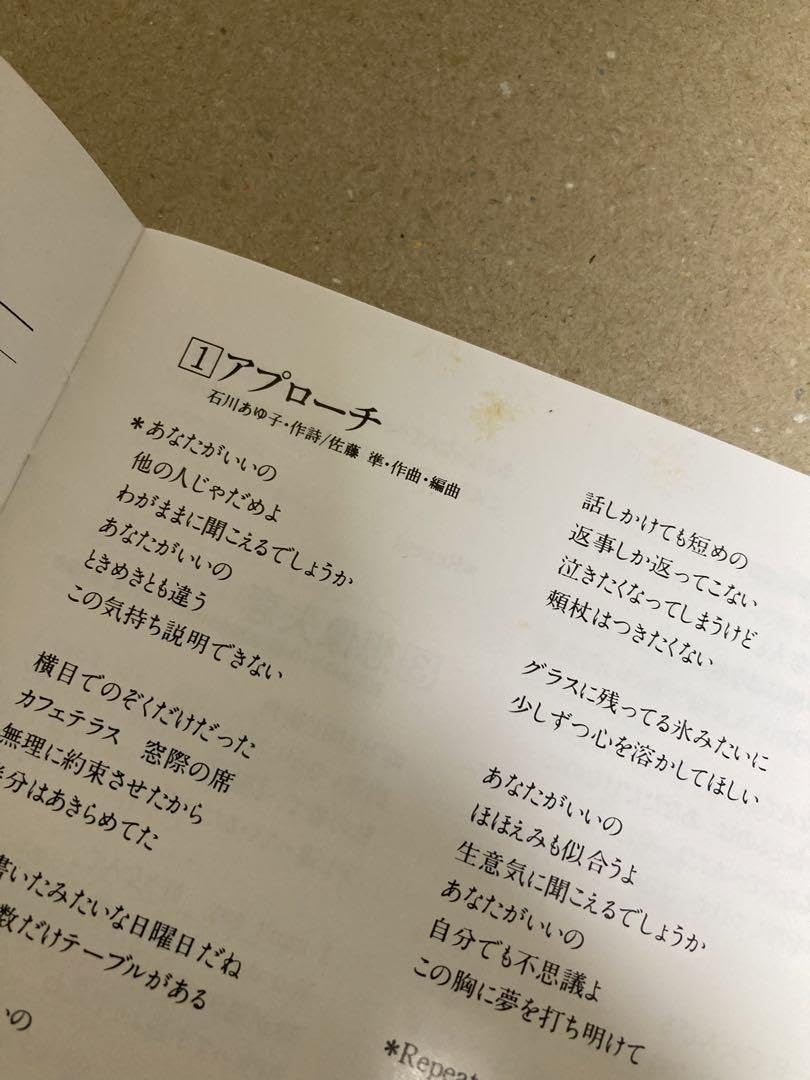 1 アプローチ
石川あゆ子・作詩/佐藤 準・作曲・編曲
*あなたがいいの
他の人じゃだめよ
わがままに聞こえるでしょうか
あなたがいいの
ときめきとも違う
この気持ち説明できない
横目でのぞくだけだった
カフェテラス 窓際の席
無理に約束させたから
分はあきらめてた
いたみたいな日曜日だね
数だけテーブルがある
いの
話しかけても短めの
返事しか返ってこない
泣きたくなってしまうけど
頬杖はつきたくない
グラスに残ってる氷みたいに
少しずつ心を溶かしてほしい
あなたがいいの
ほほえみも似合うよ
生意気に聞こえるでしょうか
あなたがいいの
自分でも不思議よ
この胸に夢を打ち明けて
*Repeat